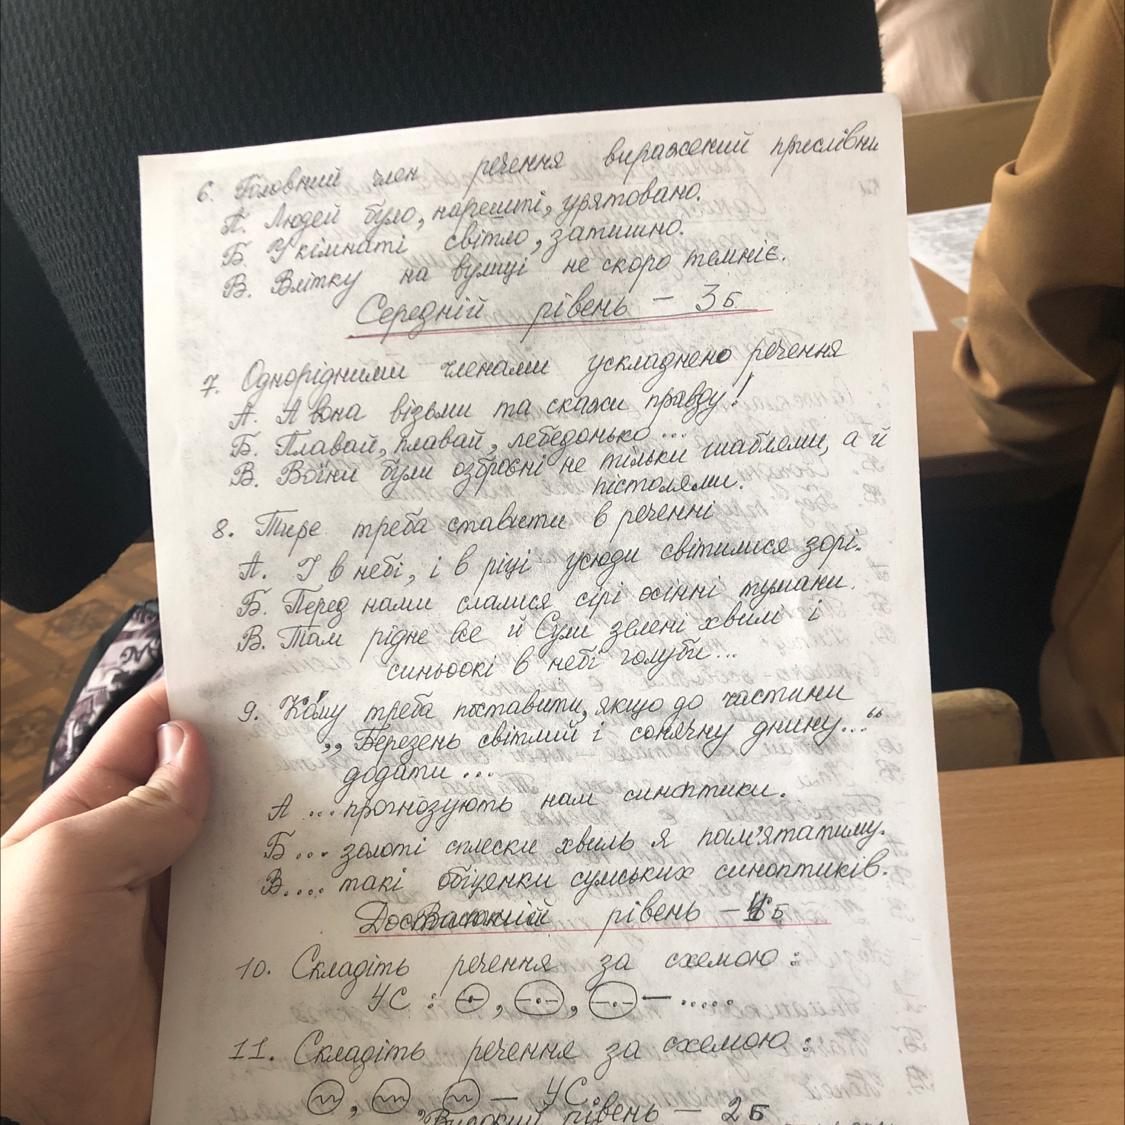 6. Головний член речення виражений прислівни
А. Людей було, нарешті, урятовано.
Б. У кімнаті світло, затишно.
В. Влітку на вулиці не скоро темніє.
Середній рівень – 3 б
7. Однорідними членами ускладнено речення
А. А вона візьми та скажи правду!
Б. Плавай, плавай, лебедонько...
В. Воїни були озброєні не тільки шаблями, а й
пістолями.
8. Тире треба ставити в реченні
А. І в небі, і в ріці усюди світилися зорі.
Б. Перед нами слалися сірі осінні тумани.
В. Там рідне все й Сули зелені хвилі і
синьоокі в небі голуби...
9. Кому треба поставити, якщо до частини
„Березень світлий і сонячну днину..."
додати ...
А ... прогнозують нам синоптики.
Б ... золоті сплески хвиль я пам'ятатиму.
В.... такі обіцянки сумських синоптиків.
Достатній рівень – 4 б
10. Складіть речення за схемою:
УС: , , – .....
11. Складіть речення за схемою:
, , – УС.
Високий рівень – 2 б